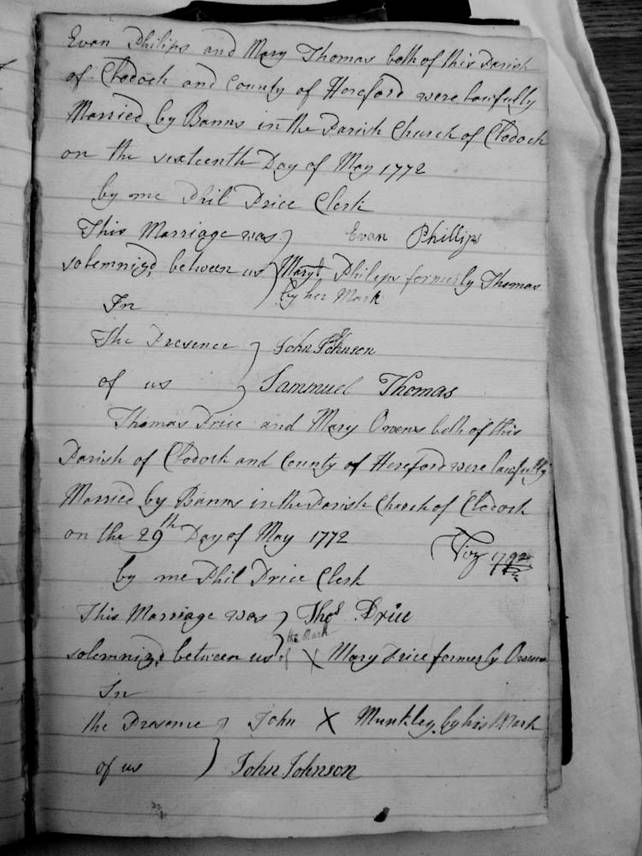 Evan Philips and Mary Thomas both of this Parish
of Clodock and County of Hereford were lawfully
Married by Banns in the Parish Church of Clodock
on the sixteenth Day of May 1772
by me Phil Price Clerk
This Marriage was } Evan Phillips
solemnized between us } Mary Philips formerly Thomas
by her Mark
In
The Presence } John Johnson
of us } Sammuel Thomas
Thomas Price and Mary Owens both of this
Parish of Clodock and County of Hereford were lawfully
Married by Banns in the Parish Church of Clodock
on the 29th Day of May 1772
(Viz 1792
by me Phil Price Clerk
This Marriage was } Thos Price
the Mark
solemnized between us } of X Mary Price formerly Owens
In
the Presence } John X Munkley by his Mark
of us } John Johnson